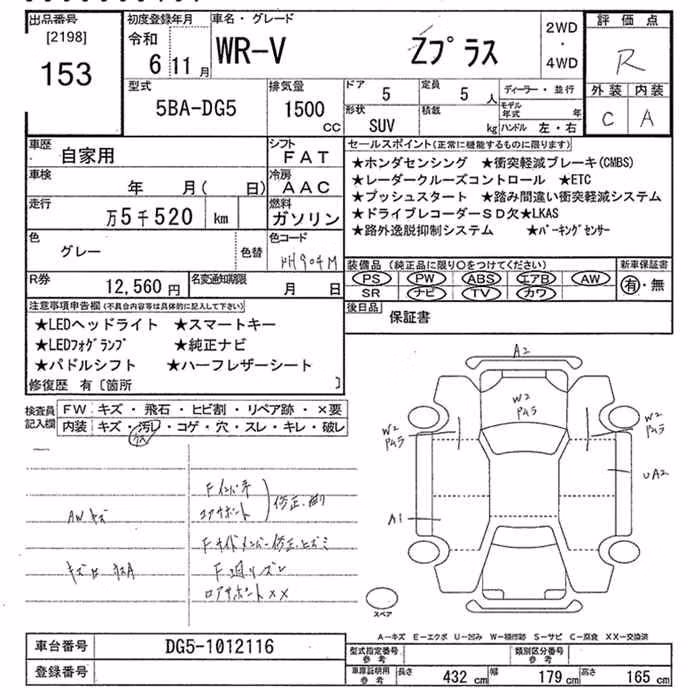 出品番号
[2198]
153
初度登録年月
令和
6 11月
車名・グレード
WR-V Zプラス
2WD
・
4WD
評価点
R
外装 内装
C A
型式
5BA-DG5
排気量
1500
CC
ドア
5
定員
5 人
形状
SUV
積載
kg
ディーラー・並行
モデル年式 年
ハンドル 左・右
車歴
自家用
シフト
FAT
車検
年 月( 日)
冷房
AAC
走行
万5千520 km
燃料
ガソリン
色
グレー
色替
色コード
PH904M
R券
12,560円
名変通知期限
月 日
セールスポイント(正常に機能するものに限ります)
★ホンダセンシング ★衝突軽減ブレーキ(CMBS)
★レーダークルーズコントロール ★ETC
★プッシュスタート ★踏み間違い衝突軽減システム
★ドライブレコーダーSD欠★LKAS
★路外逸脱抑制システム ★パーキングセンサー
装備品(純正品に限り○をつけてください)
PS PW ABS エアB AW
SR ナビ TV カワ
新車保証書
有・無
後日品
保証書
注意事項申告欄(不具合内容等は具体的に記入して下さい)
★LEDヘッドライト ★スマートキー
★LEDフォグランプ ★純正ナビ
★パドルシフト ★ハーフレザーシート
修復歴 有〔箇所 〕
検査員記入欄
FW キズ・飛石・ヒビ割・リペア跡・×要
内装 キズ・汚レ・コゲ・穴・スレ・キレ・破レ
Fインパネ
コアサポート
修正、曲り
AWキズ
Fサイドメンバー修正、ヒズミ
ロアサポート××
A2
W2
W2
W2
A1
UA2
スペア
A-キズ E-エクボ U-凹み W-補修跡 S-サビ C-腐食 XX-交換済
車台番号
DG5-1012116
登録番号
型式指定番号
参考
類別区分番号
参考
車庫証明用
参考
長さ 432 cm
幅 179 cm
高さ 165 cm